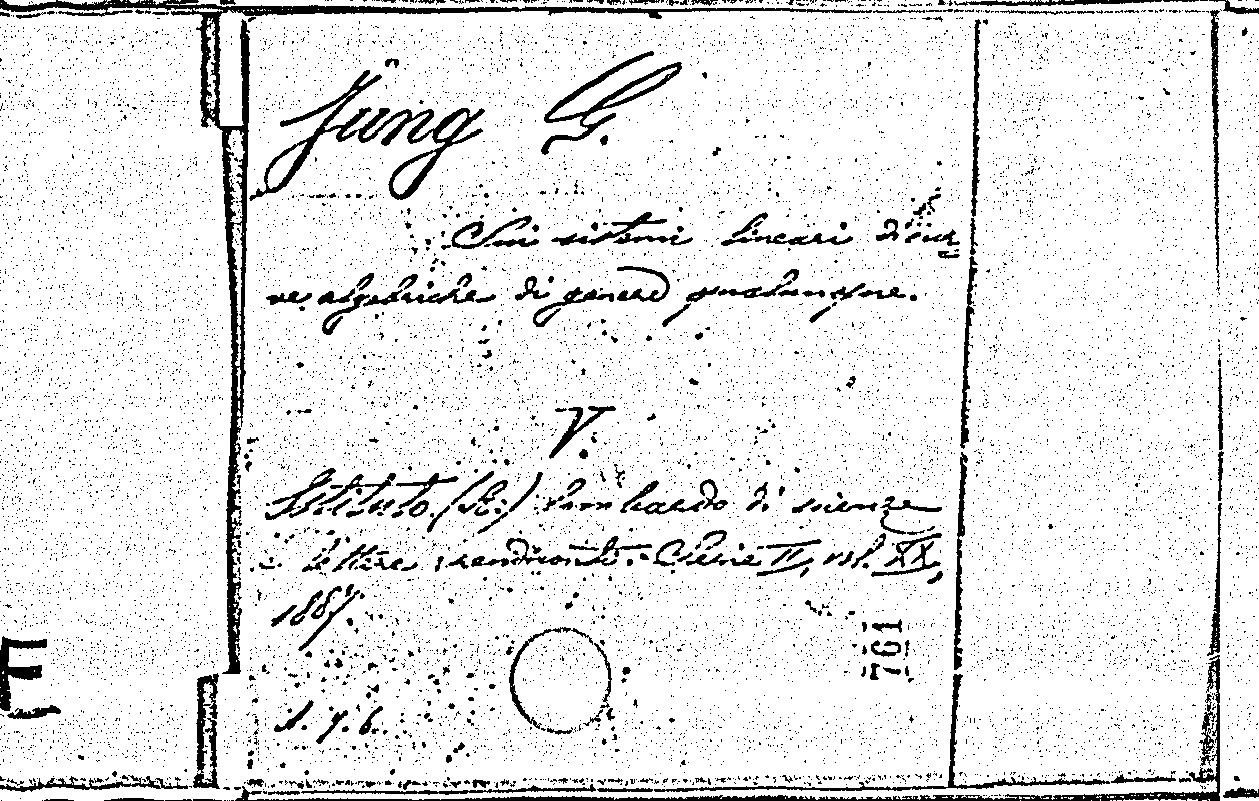 Jung G.
Sui sistemi lineari di cur
ve algebriche di genere qualunque.
V.
Istituto (R.) Lombardo di scienze
e lettere, rendiconti. Serie II, vol. XX,
1887.
761
1. 7. 6.
E